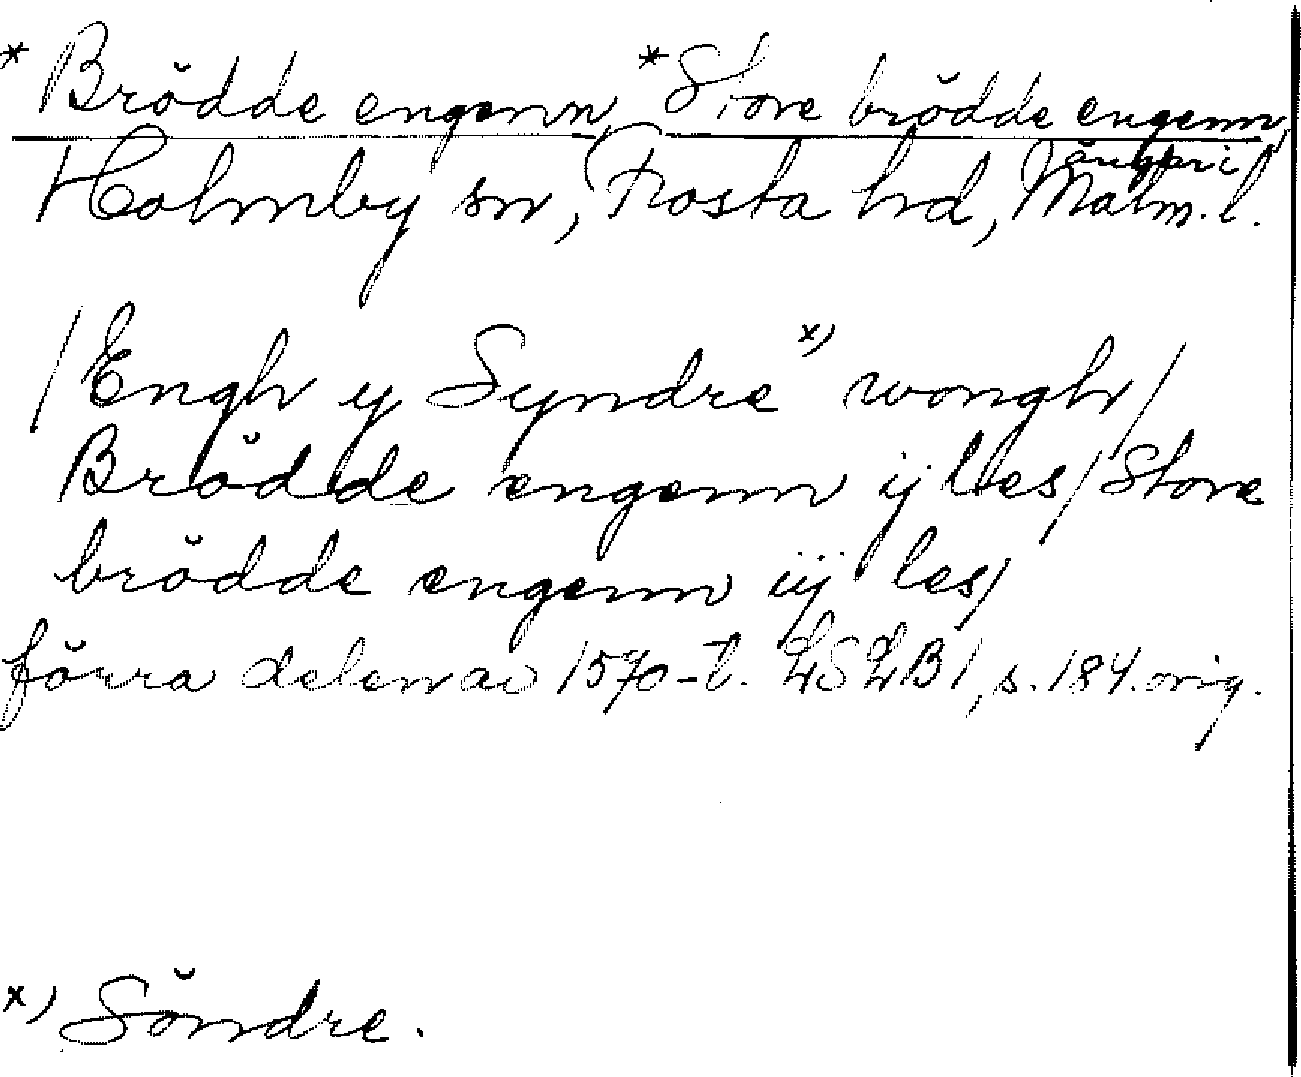 * Brödde engenn, * Store brödde engenn,
ängar i
Holmby sn, Frosta hd, Malm. l.
/Engh y Syndre x) wongh/
Brödde engenn ij les/ Store
brödde engenn iij les/
förra delen av 1570-t. LSLB 1, s. 184. orig.
x) Söndre.